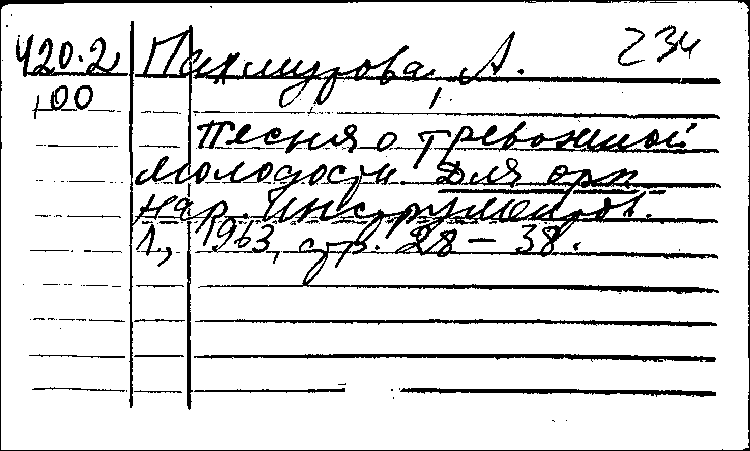 420.2 Пахмутова, А. 234
,00
Песня о тревожной
молодости. Для орк.
нар. инструментов.
Л., 1963, стр. 28 – 38.